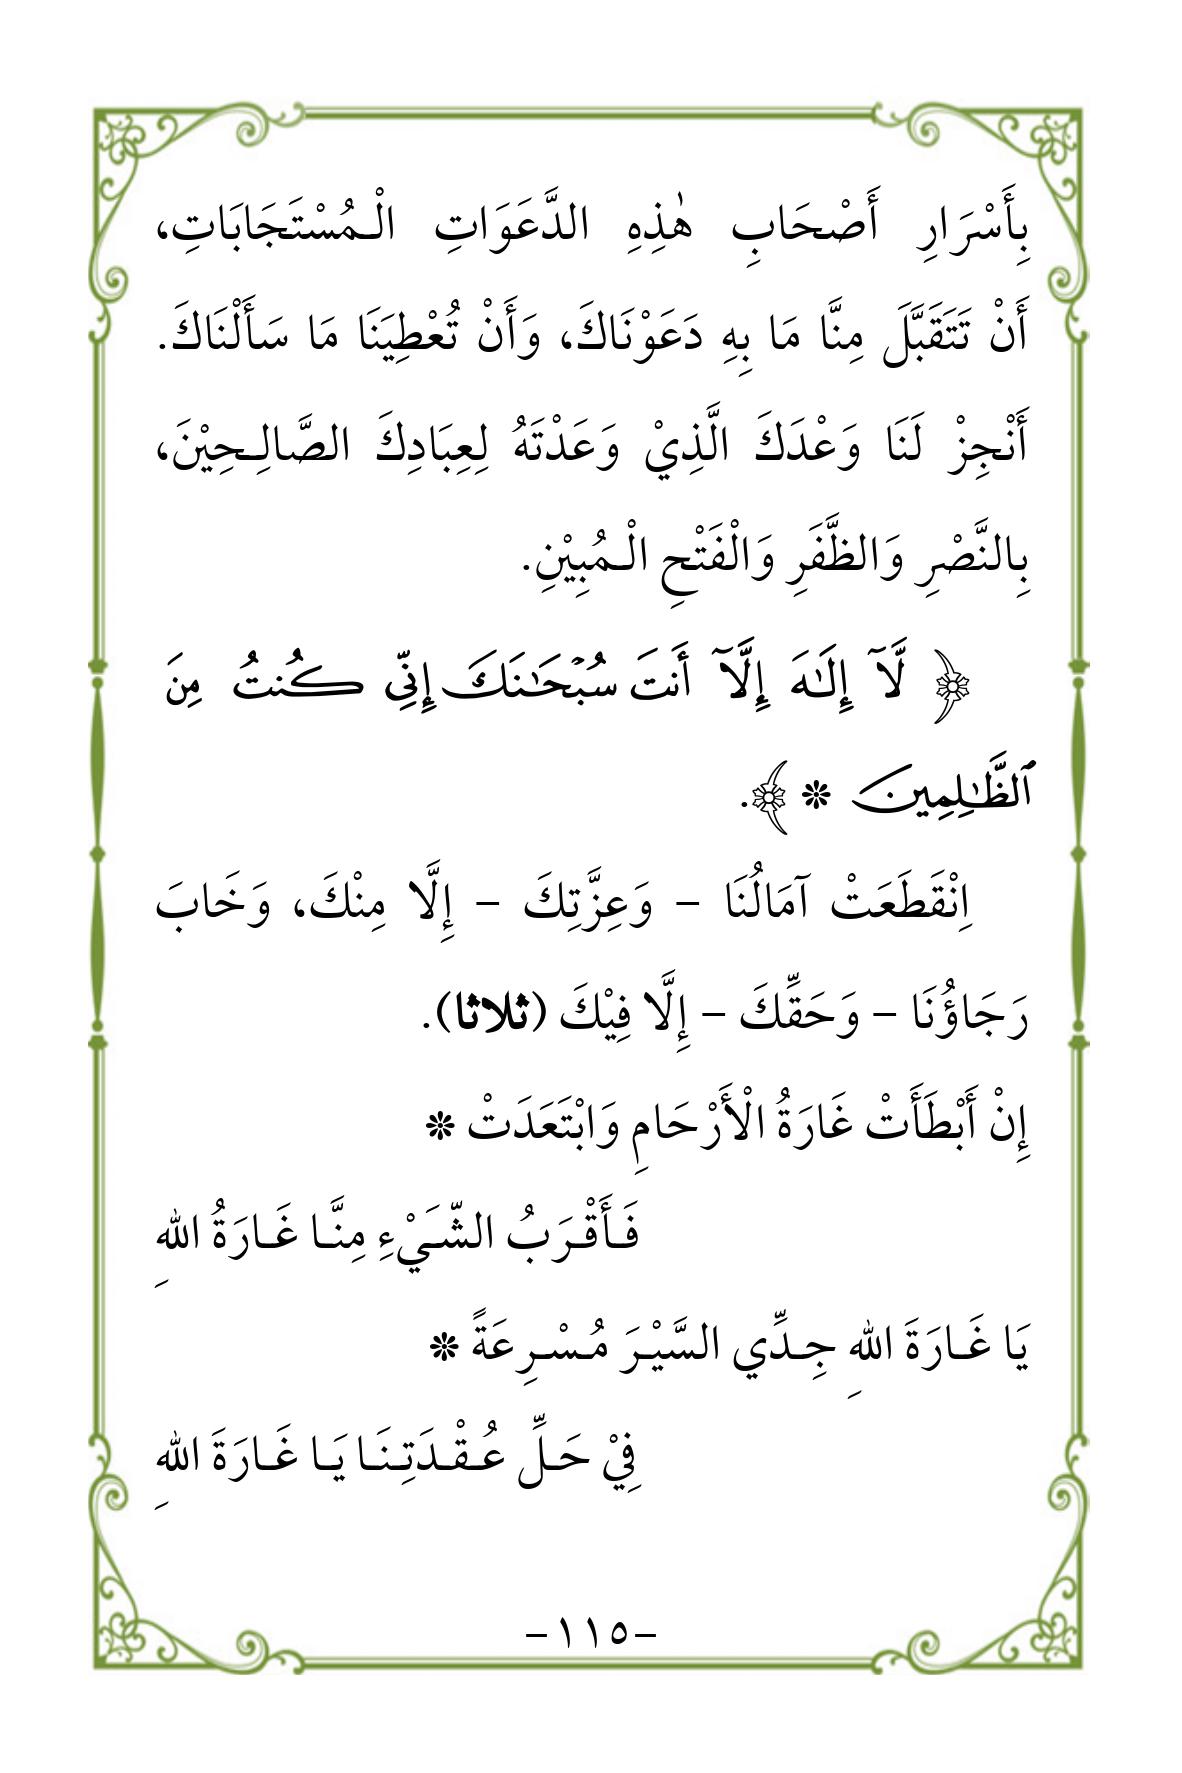 بِأَسْرَارِ أَصْحَابِ هٰذِهِ الدَّعَوَاتِ الْـمُسْتَجَابَاتِ،
أَنْ تَتَقَبَّلَ مِنَّا مَا بِهِ دَعَوْنَاكَ، وَأَنْ تُعْطِيَنَا مَا سَأَلْنَاكَ.
أَنْجِزْ لَنَا وَعْدَكَ الَّذِيْ وَعَدْتَهُ لِعِبَادِكَ الصَّالِـحِيْنَ،
بِالنَّصْرِ وَالظَّفَرِ وَالْفَتْحِ الْـمُبِيْنِ.
﴿ لَّآ إِلَـٰهَ إِلَّآ أَنتَ سُبْحَـٰنَكَ إِنِّي كُنتُ مِنَ
ٱلظَّـٰلِمِينَ ❊ ﴾.
اِنْقَطَعَتْ آمَالُنَا – وَعِزَّتِكَ – إِلَّا مِنْكَ، وَخَابَ
رَجَاؤُنَا – وَحَقِّكَ – إِلَّا فِيْكَ (ثلاثا).
إِنْ أَبْطَأَتْ غَارَةُ الْأَرْحَامِ وَابْتَعَدَتْ ❊
فَـأَقْـرَبُ الشَّـيْءِ مِنَّـا غَـارَةُ اللهِ
يَا غَـارَةَ اللهِ جِـدِّي السَّيْـرَ مُـسْـرِعَةً ❊
فِيْ حَـلِّ عُـقْـدَتِـنَـا يَـا غَـارَةَ اللهِ
–١١٥–